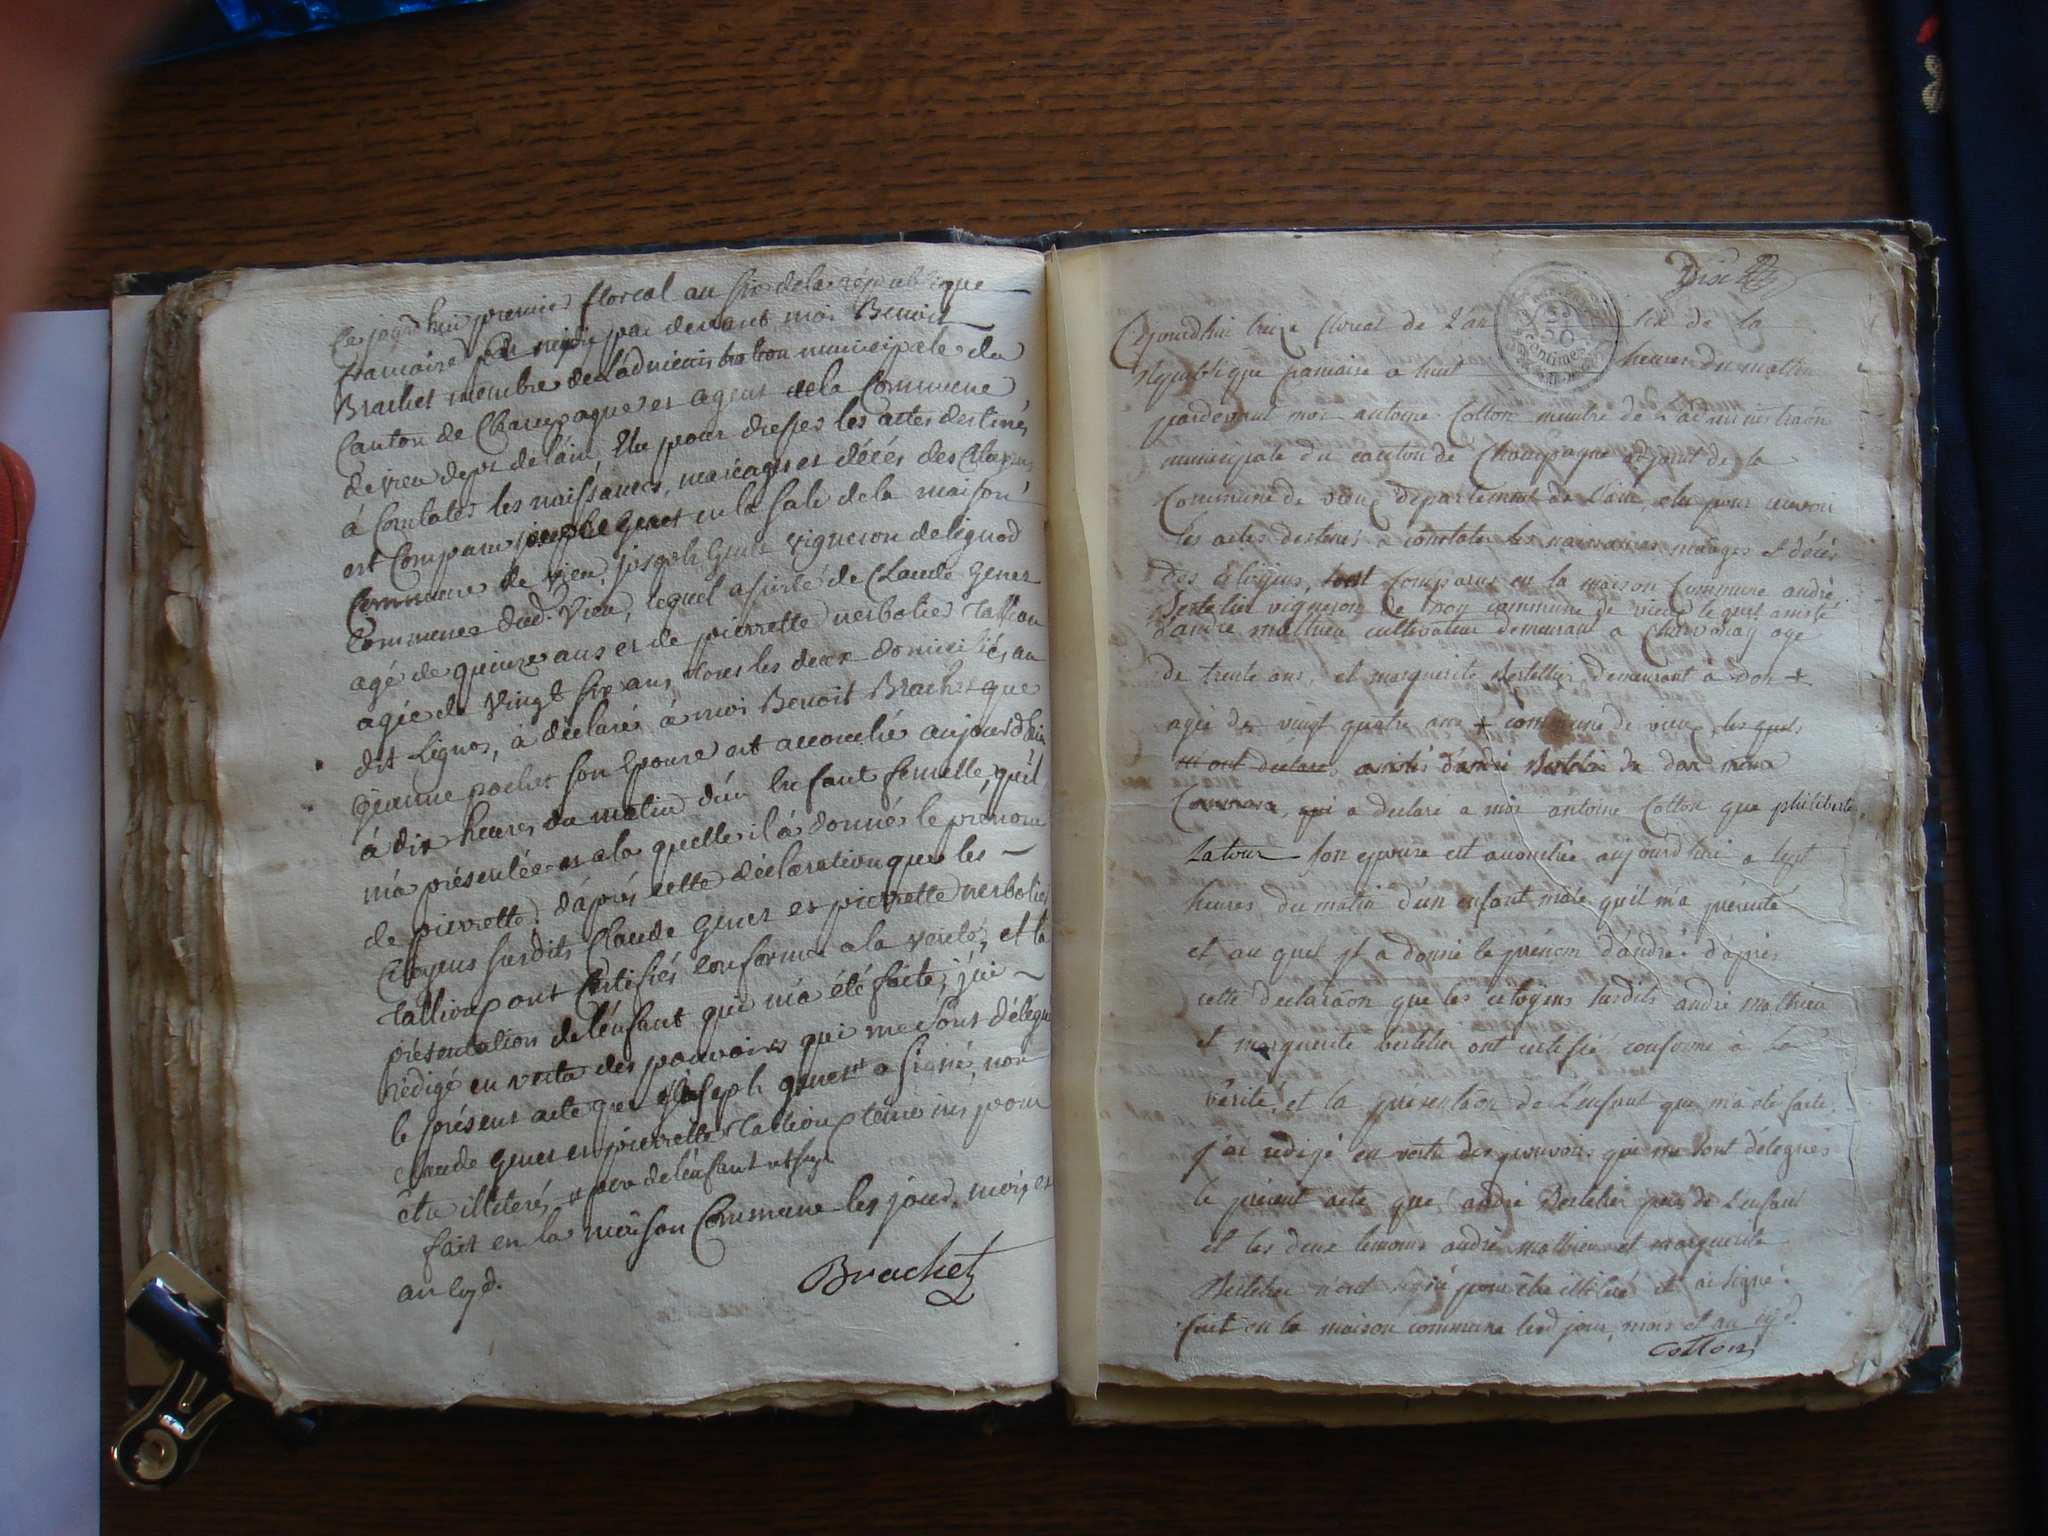 Ce jourd'hui premier floreal an six de la république
francaise par devant moi Benoit
Brachet membre de l'administration municipale du
Canton de Champagne et agent de la Commune
de vieu dept de l'ain Elu pour dresser les actes destinés
à Constater les naissances, mariages et décés des Citoyens
est Comparu joseph Genet en la sale de la maison
Commune de vieu, joseph Genet vigneron de lignod
Commune dud. Vieu, lequel assisté de Claude Genet
agé de quinze ans et de pierrette verbolier Tallion
agée de Vingt six ans, tous les deux domiciliés au
dit Lignod, à déclaré à moi Benoit Brachet que
jeanne pochet son Epouse est accouchée aujourd'hui
à dix heures du matin d'un Enfant femelle, qu'il
m'a présentée et a la quelle il à donnés le prénom
de pierrette. d'après cette déclaration que les
Citoyens susdits Claude Genet et pierrette verbolier
Tallion ont Certifiés conforme a la verité, et la
présentation de l'enfant qui m'a été faite, j'ai
rédigé en vertu des pouvoirs qui me sont délégués
le présent acte que joseph Genet a signé, non
claude Genet et pierrette Tallion témoins pour
être illiterés, père de l'enfant
fait en la maison Commune les jour, mois et
an Cyd.
Brachet
Dix
Cejourdhui treize floreal de l'an six de la
50 centimes
Republique francaise a huit heures du matin
pardevant moi antoine Cotton membre de l'administraon
municipale du canton de Champagne adjoint de la
Commune de vieux departement de l'ain, elu pour recevoir
les actes destinés a constater les naissances mariages et décés
des Citoyens, sont Comparus en la maison Commune andré
Bertelier vigneron de Don commune de vieux lequel assisté
d'andré mathieu cultivateur demeurant a Charvonay agé
de trente ans, et marguerite Bertellier demeurant à Don +
agée de vingt quatre ans + commune de vieux, les quels
m'ont déclarés assistés d'andré Bertelier de don même
Commune, qui a declaré a moi antoine Cotton que philiberte
Latour son epouse est accouchée aujourdhui a sept
heures du matin d'un enfant mâle qu'il m'a présenté
et au quel il a donné le prénom d'andré. d'après
cette declaraon que les citoyens susdits andré mathieu
et marguerite bertelier ont certifié conforme à la
vérité, et la présentaon de L'enfant qui m'a été faite,
j'ai redigé en vertu des pouvoirs qui me sont délegués
le présent acte que andré Bertelier père de L'enfant
et les deux temoins andré mathieu et marguerite
Bertelier n'ont signé pour être illitéré et ai signé.
fait en la maison commune lesd jour, mois et an cyd.
Cotton